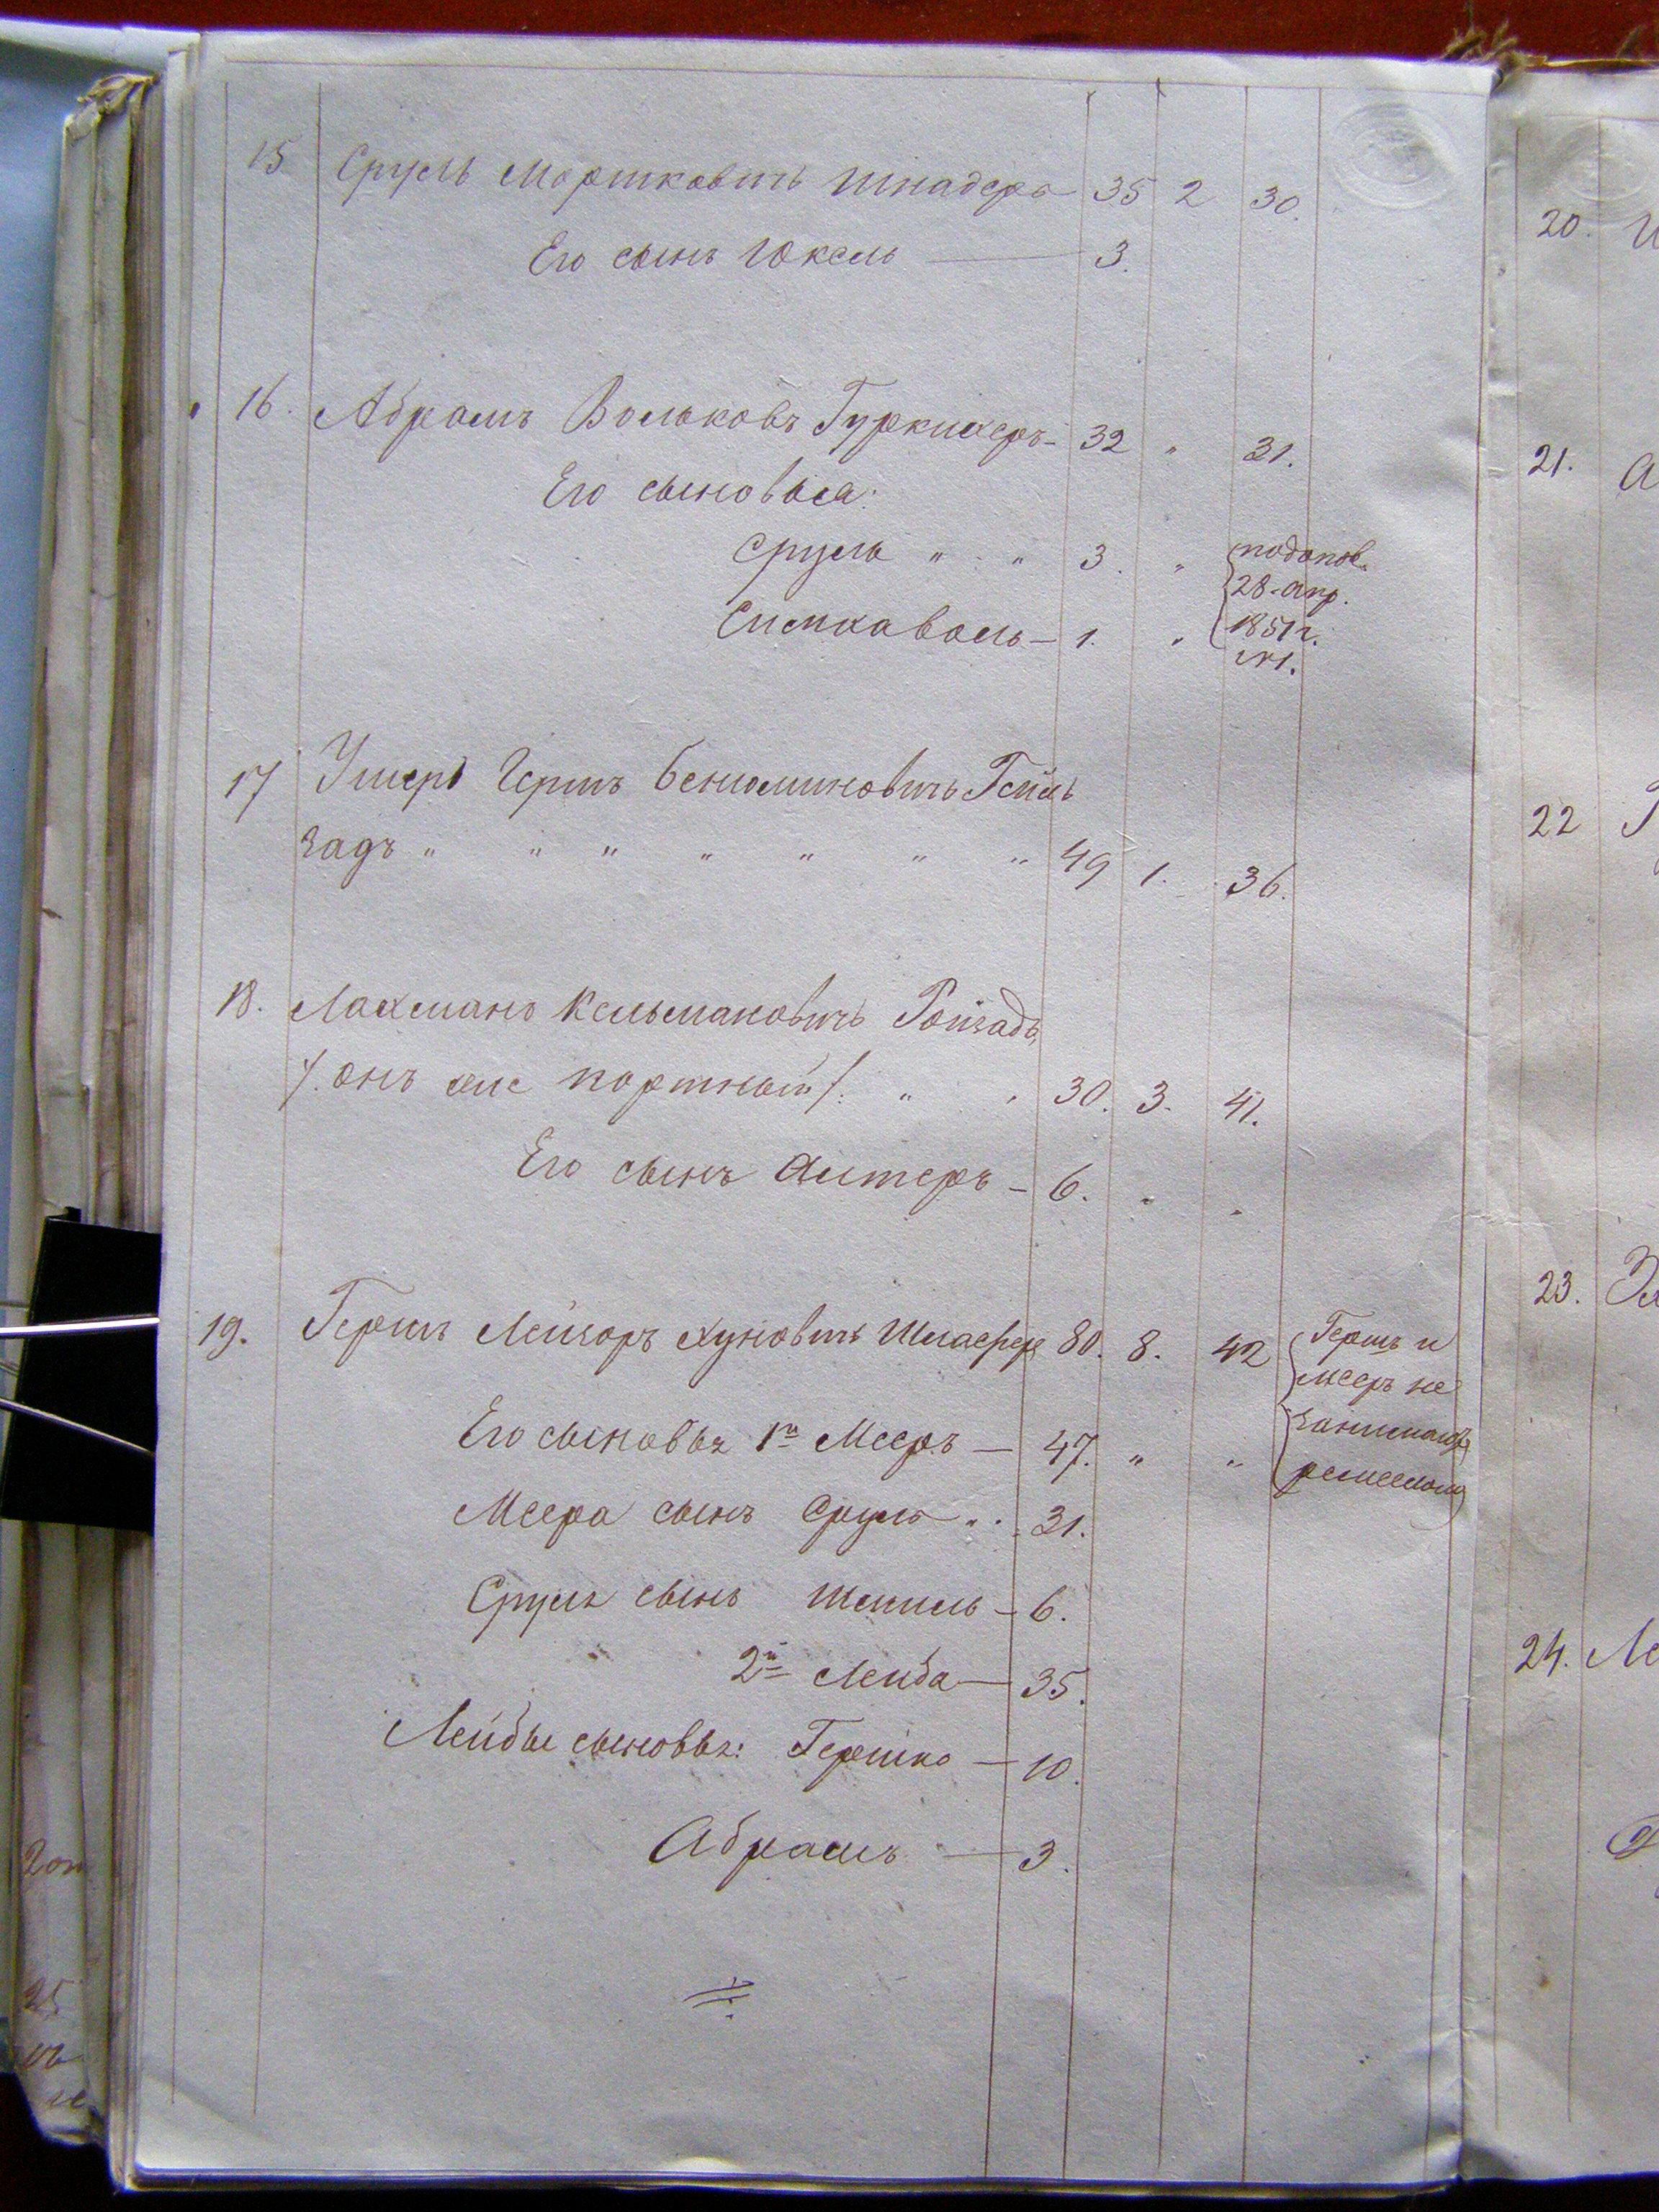 15 Сруль Мортковичъ Шнадеръ 35 2 30.
Его сынъ Юкель — 3.
16. Абрамъ Вольковъ Гуркихеръ - 32 " 31.
Его сыновья:
Сруль " " 3. "
Симхаволь — 1. "
28 апр.
1851 г.
№1.
17 Ушеръ Гершъ Беніоминовичъ Гейль
задъ " " " " " " " 49 1. 36.
18. Лахманъ Кельмановичъ Ройзадъ,
/. онъ же портной /. " " 30. 3. 41.
Его сынъ Алтеръ — 6. " "
19. Гершъ Лейзоръ Хуновичъ 80. 8. 42
Гершъ и
Мееръ не
занимаются
ремесломъ
Его сыновья 1й Мееръ — 47. " "
Меера сынъ Сруль . . 31.
Сруля сынъ Шмиль — 6.
2й Лейба — 35.
Лейбы сыновья: Гершко — 10.
Абрамъ — 3.
20.
21.
22
23.
24.